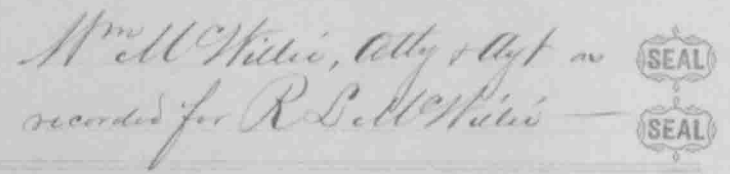 Wm McWillie, Atty & Agt as SEAL
recorded for R L McWillie — SEAL